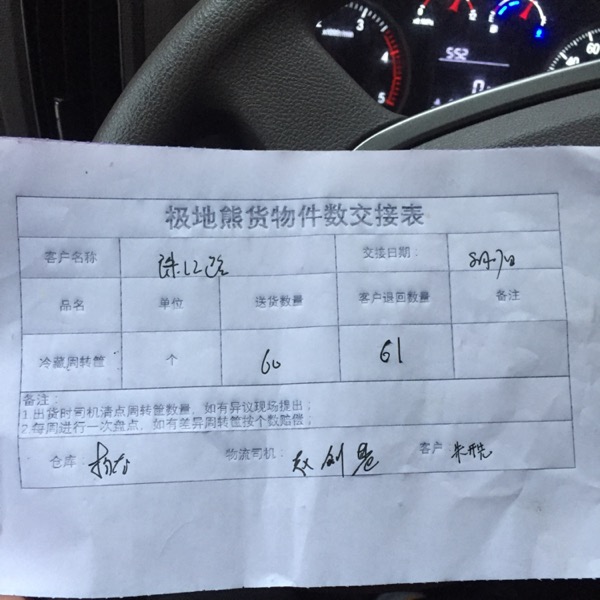 极地熊货物件数交接表
客户名称 交接日期：
品名 单位 送货数量 客户退回数量 备注
冷藏周转筐 个 60 61
备注：
1.出货时司机清点周转筐数量，如有异议现场提出；
2.每周进行一次盘点，如有差异周转筐按个数赔偿；
仓库： 物流司机： 客户
552
3
4
5
40
60